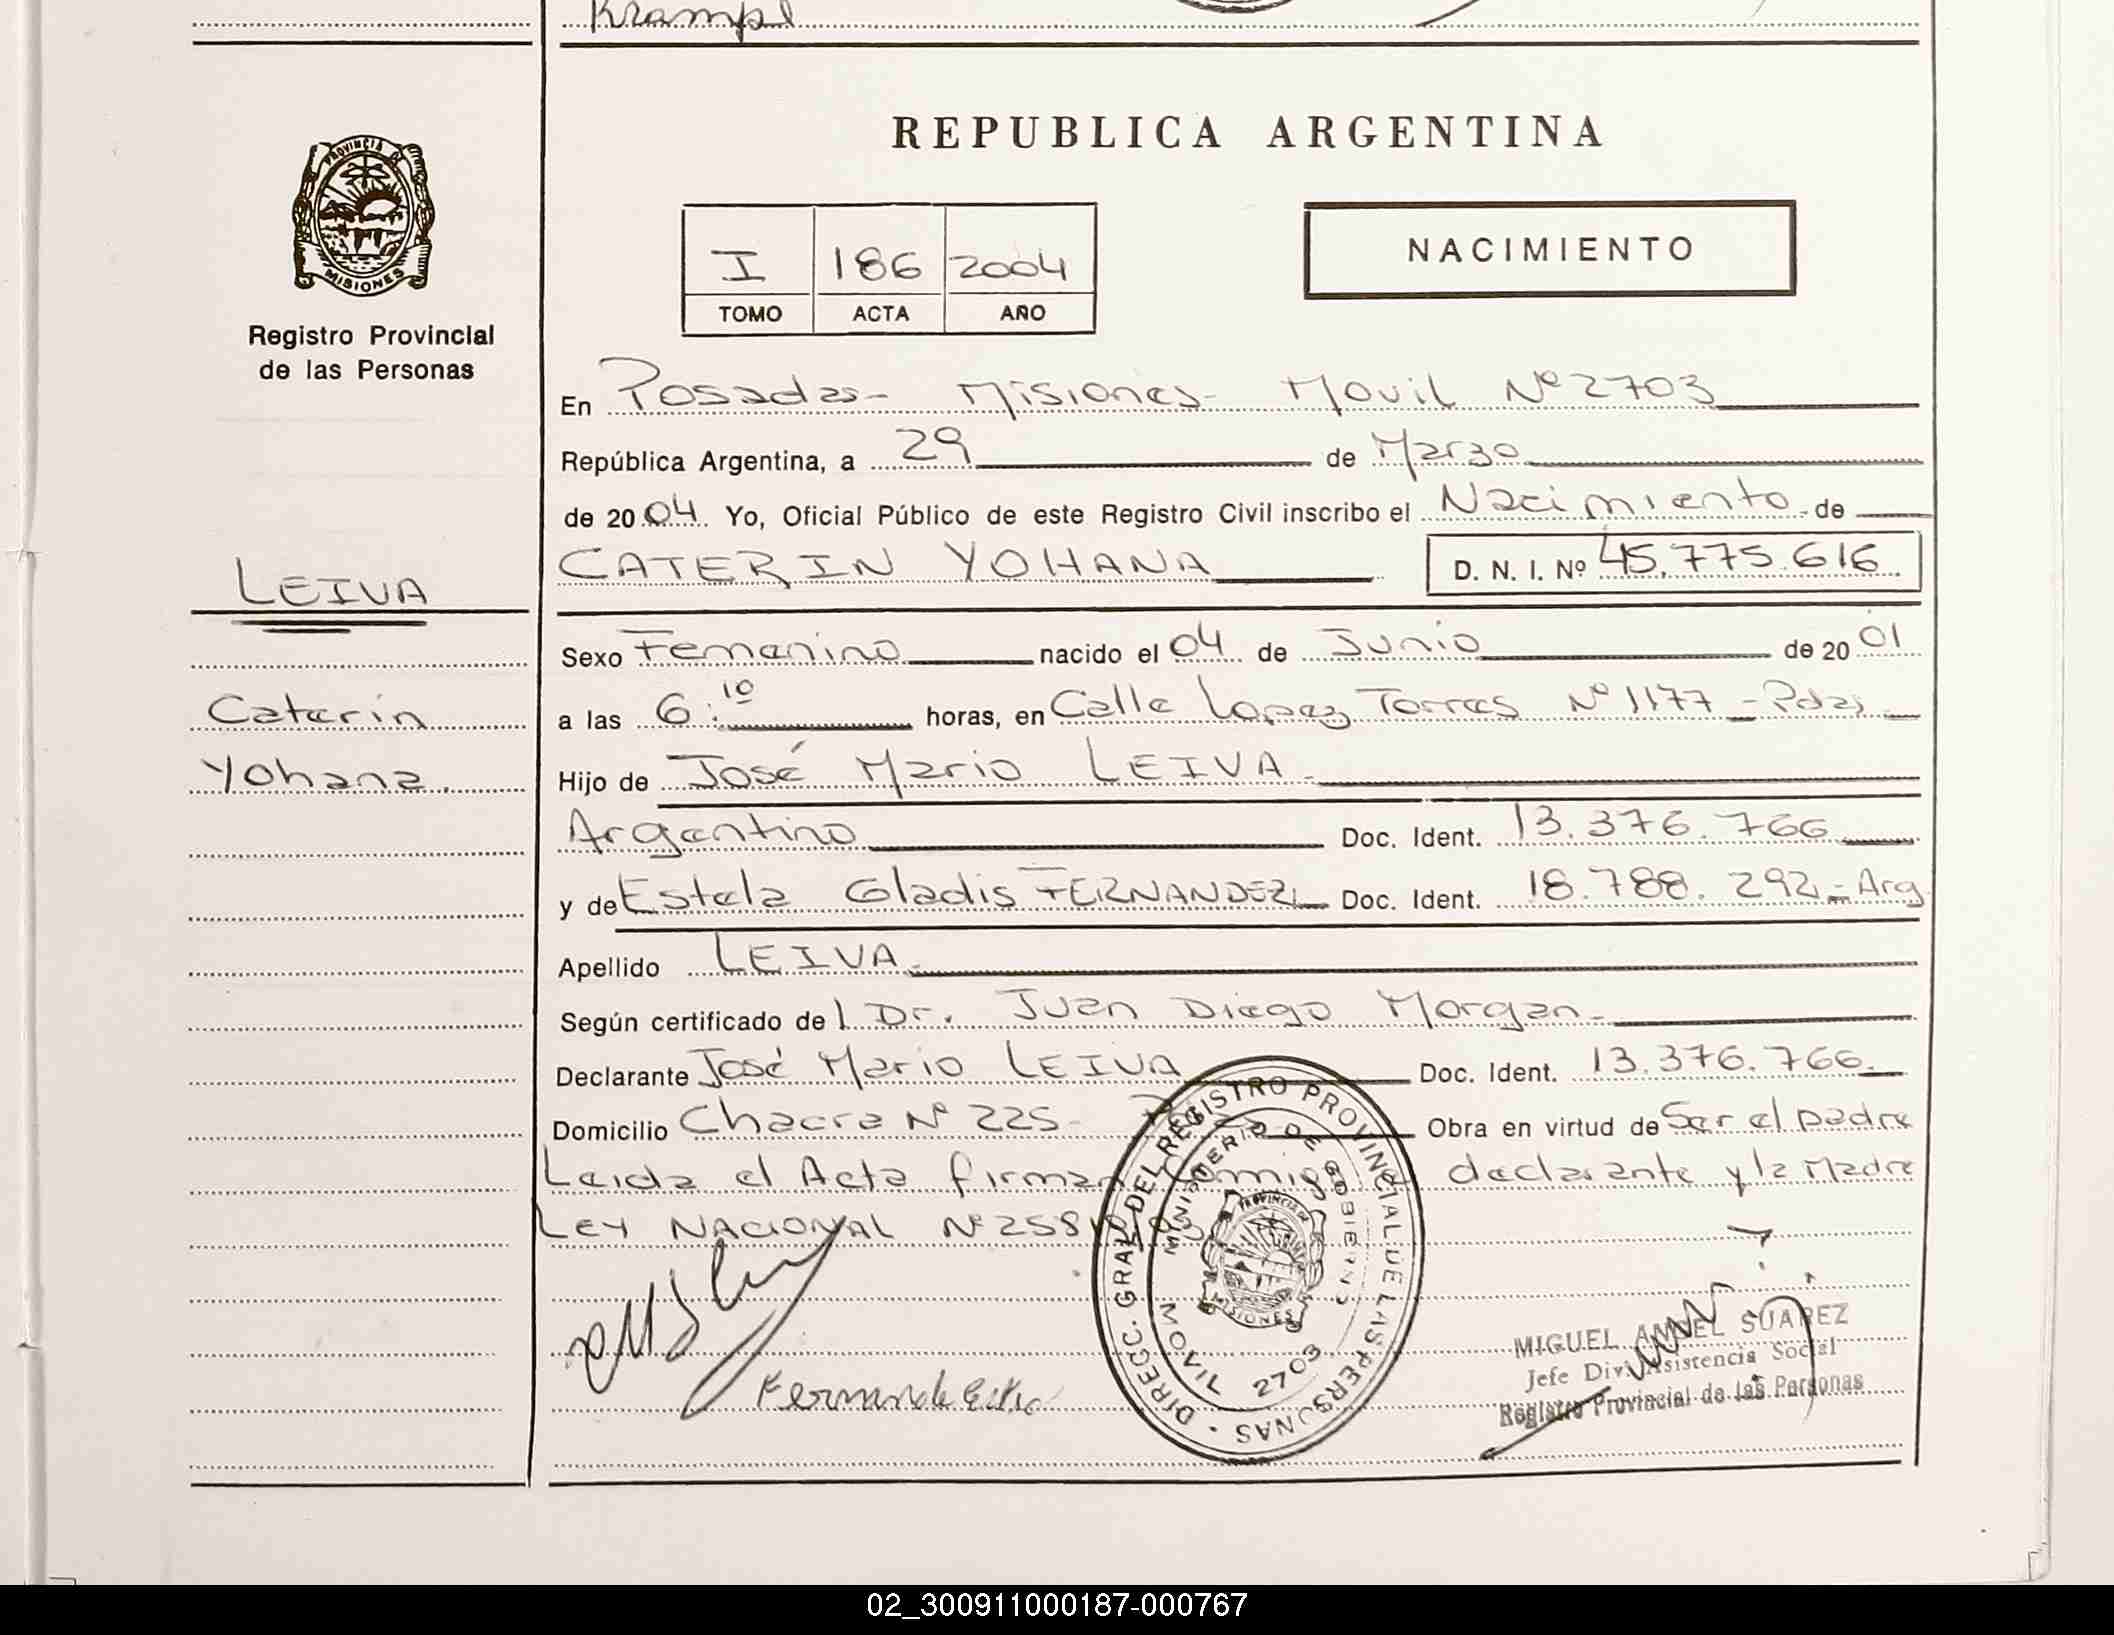 Krampl
PROVINCIA DE
MISIONES
Registro Provincial
de las Personas
REPUBLICA ARGENTINA
I 186 2004
TOMO ACTA AÑO
NACIMIENTO
En Posadas- Misiones- Movil Nº 2703
República Argentina, a 29 de Marzo
de 2004. Yo, Oficial Público de este Registro Civil inscribo el Nacimiento de
CATERIN YOHANA D. N. I. Nº 45.775.616
LEIVA
Sexo Femenino nacido el 04 de Junio de 2001
Caterin
a las 6:10 horas, en Calle Lopez Torres Nº 1177 - Pdas -
Yohana.
Hijo de José Mario LEIVA
Argentino Doc. Ident. 13.376.766
y de Estela Gladis FERNANDEZ Doc. Ident. 18.788.292 - Arg
Apellido LEIVA
Según certificado del Dr. Juan Diego Morgan
Declarante José Mario LEIVA Doc. Ident. 13.376.766
Domicilio Chacra Nº 225- Obra en virtud de Ser el padre
Leida el Acta firman declarante y la Madre
LEY NACIONAL Nº
DIRECC. GRAL. DEL REGISTRO PROVINCIAL DE LAS PERSONAS
MINISTERIO DE GOBIERNO
PROVINCIA DE
MISIONES
MOVIL 2703
MIGUEL ANGEL SUAREZ
Jefe Div. Asistencia Social
Registro Provincial de las Personas
02_300911000187-000767